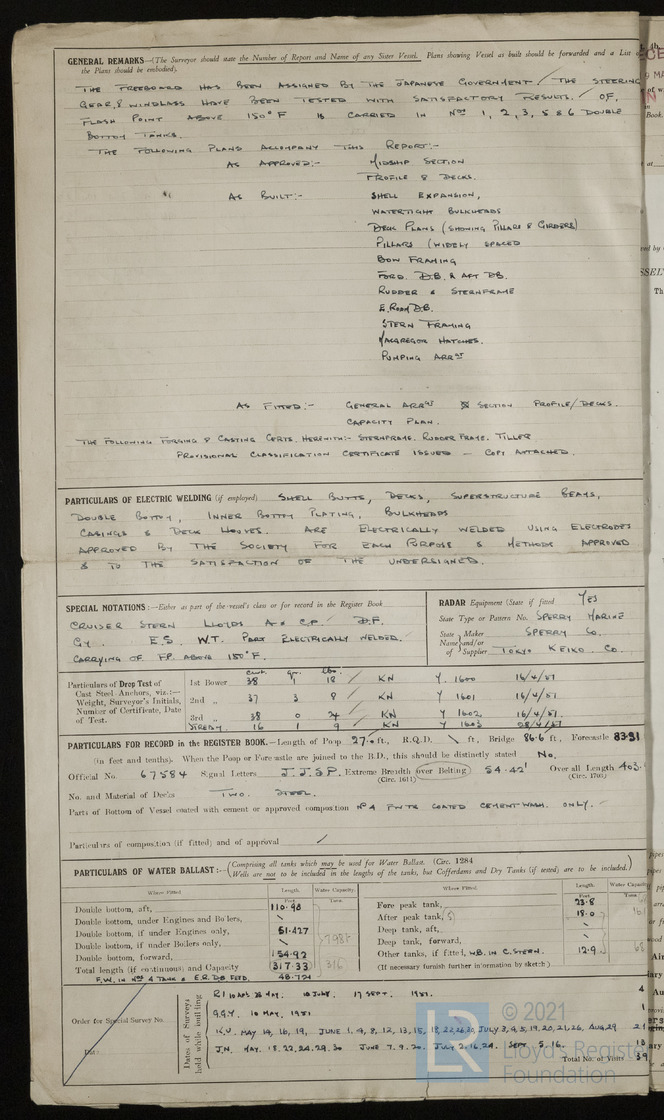 GENERAL REMARKS—(The Surveyor should state the Number of Report and Name of any Sister Vessel. Plans showing Vessel as built should be forwarded and a List of
the Plans should be embodied).
THE FREEBOARD HAS BEEN ASSIGNED BY THE JAPANESE GOVERNMENT / THE STEERING
GEAR, & WINDLASS HAVE BEEN TESTED WITH SATISFACTORY RESULTS. / O.F.
FLASH POINT ABOVE 150°F IS CARRIED IN Nos 1, 2, 3, 5 & 6 DOUBLE
BOTTOM TANKS.
THE FOLLOWING PLANS ACCOMPANY THIS REPORT:-
AS APPROVED:- MIDSHIP SECTION
PROFILE & DECKS.
AS BUILT:- SHELL EXPANSION,
WATERTIGHT BULKHEADS
DECK PLANS (SHOWING PILLARS & GIRDERS)
PILLARS (WIDELY SPACED
BOW FRAMING
FORD. D.B. & AFT DB.
RUDDER & STERNFRAME
E. ROOM D.B.
STERN FRAMING
MACGREGOR HATCHES.
PUMPING ARRGT
AS FITTED:- GENERAL ARRGT SECTION PROFILE/DECKS.
CAPACITY PLAN.
THE FOLLOWING FORGING & CASTING CERTS. HEREWITH:- STERNFRAME. RUDDER FRAME. TILLER
PROVISIONAL CLASSIFICATION CERTIFICATE ISSUED — COPY ATTACHED.
PARTICULARS OF ELECTRIC WELDING (if employed) SHELL BUTTS, DECKS, SUPERSTRUCTURE BEAMS,
DOUBLE BOTTOM, INNER BOTTOM PLATING, BULKHEADS
CASINGS & DECK HOUSES. ARE ELECTRICALLY WELDED USING ELECTRODES
APPROVED BY THE SOCIETY FOR EACH PURPOSE & METHODS APPROVED
& TO THE SATISFACTION OF THE UNDERSIGNED.
SPECIAL NOTATIONS:—Either as part of the vessel's class or for record in the Register Book
CRUISER STERN LLOYDS A & C.P. D.F.
GY. E.S. W.T. PART ELECTRICALLY WELDED.
CARRYING OF FP. ABOVE 150°F.
RADAR Equipment (State if fitted YES
State Type or Pattern No. SPERRY MARINE
State Name of Maker and/or Supplier SPERRY CO,
TOKYO KEIKO. CO.
Particulars of Drop Test of
Cast Steel Anchors, viz.:—
Weight, Surveyor's Initials,
Number of Certificate, Date
of Test.
cwt. qr. lbs.
1st Bower 38 1 18 / KN Y. 1600 16/4/51
2nd „ 37 3 8 / KN Y 1601 16/4/51
3rd „ 38 0 24 / KN Y 1602 16/4/51
STREAM 16 1 9 / KN Y 1603 28/4/51
PARTICULARS FOR RECORD in the REGISTER BOOK.—Length of Poop 27.0 ft., R.Q.D. \ ft., Bridge 86.6 ft., Forecastle 83.31
(in feet and tenths). When the Poop or Forecastle are joined to the B.D., this should be distinctly stated No.
Official No. 67584 Signal Letters J.J.S.P. Extreme Breadth over Belting 54.42' Over all Length 403.
(Circ. 1611) (Circ. 1703)
No. and Material of Decks TWO. STEEL.
Parts of Bottom of Vessel coated with cement or approved composition No 4 FWTK COATED CEMENTWASH. ONLY.
Particulars of composition (if fitted) and of approval /
PARTICULARS OF WATER BALLAST:— (Comprising all tanks which may be used for Water Ballast. (Circ. 1284
Wells are not to be included in the lengths of the tanks, but Cofferdams and Dry Tanks (if tested) are to be included.)
Where Fitted. Length. Water Capacity.
Feet Tons.
Double bottom, aft, 110.98
Double bottom, under Engines and Boilers, \
Double bottom, if under Engines only, 51.427
Double bottom, if under Boilers only, \
Double bottom, forward, 154.92
Total length (if continuous) and Capacity 317.33 316
F.W. IN No 4 TANK & E.R. DB FEED. 48.724
Where Fitted. Length. Water Capacity.
Feet Tons.
Fore peak tank, 23.8
After peak tank, 18.0
Deep tank, aft, \
Deep tank, forward, \
Other tanks, if fitted, W.B. IN C. STERN. 12.9
(If necessary furnish further information by sketch)
Order for Special Survey No.
Date
Dates of Surveys
held while building
17 SEPT. 1951.
G.G.Y. 10 MAY, 1951
K.U. MAY 14, 16, 19, JUNE 1, 4, 8, 12, 13, 15, 18, 22, 26, 30, JULY 3, 9, 5, 19, 20, 21, 26, AUG 29
J.N. MAY. 18. 22, 24. 29. 30 JUNE 7. 9. 20. JULY 2. 16. 24. SEPT. 5. 16.
Total No. of Visits 39
© 2021
Lloyd's Register
Foundation